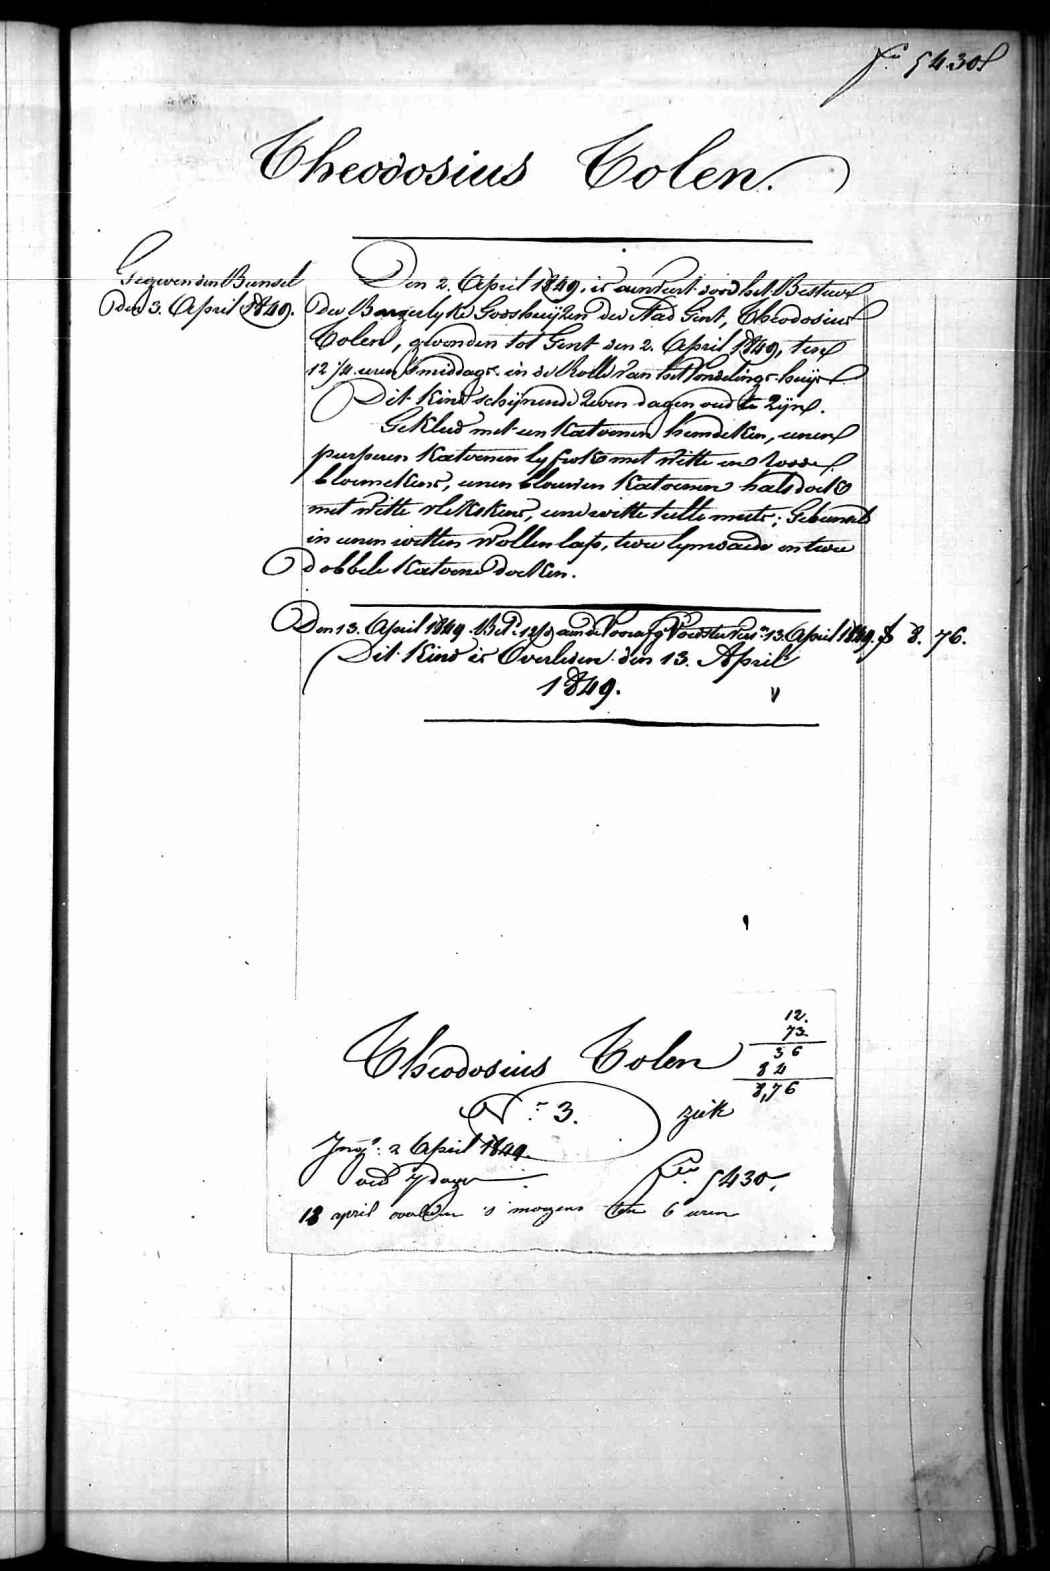 fº 5430
Theodosius Colen.
Gegeven den Bunsel
den 3. April 1849.
Den 2. April 1849, is aenveert door het Bestuer
der Burgerlyke Godshuijzen der Stad Gent, Theodosius
Colen, gevonden tot Gent den 2. April 1849, ten
12 1/4 uren smiddags in de Rolle van het Vondelings-huijs
Dit Kind schijnende zeven dagen oud te zijn.
Gekleed met een katoenen hemdeken, eenen
purperen katoenen lyfrok met witte en roode
bloemekens, eenen blauwen katoenen halsdoek
met witte vlekskens, eene witte tulle muts; Gebunseld
in eenen witten wollen lap, twee lynwaede en twee
dobbele katoene doeken.
Den 13. April 1849. Bet. 12/d aan de Voorzg. Voedster tot 13. April 1849. f 8. 76.
Dit Kind is Overleden den 13. April
1849.
12.
73.
36
84
8,76
Theodosius Colen
Nr 3.
ziek
Ing. 2 April 1849
oud 7 dagen
fº 5430.
13 april overleden 's morgens ten 6 uren